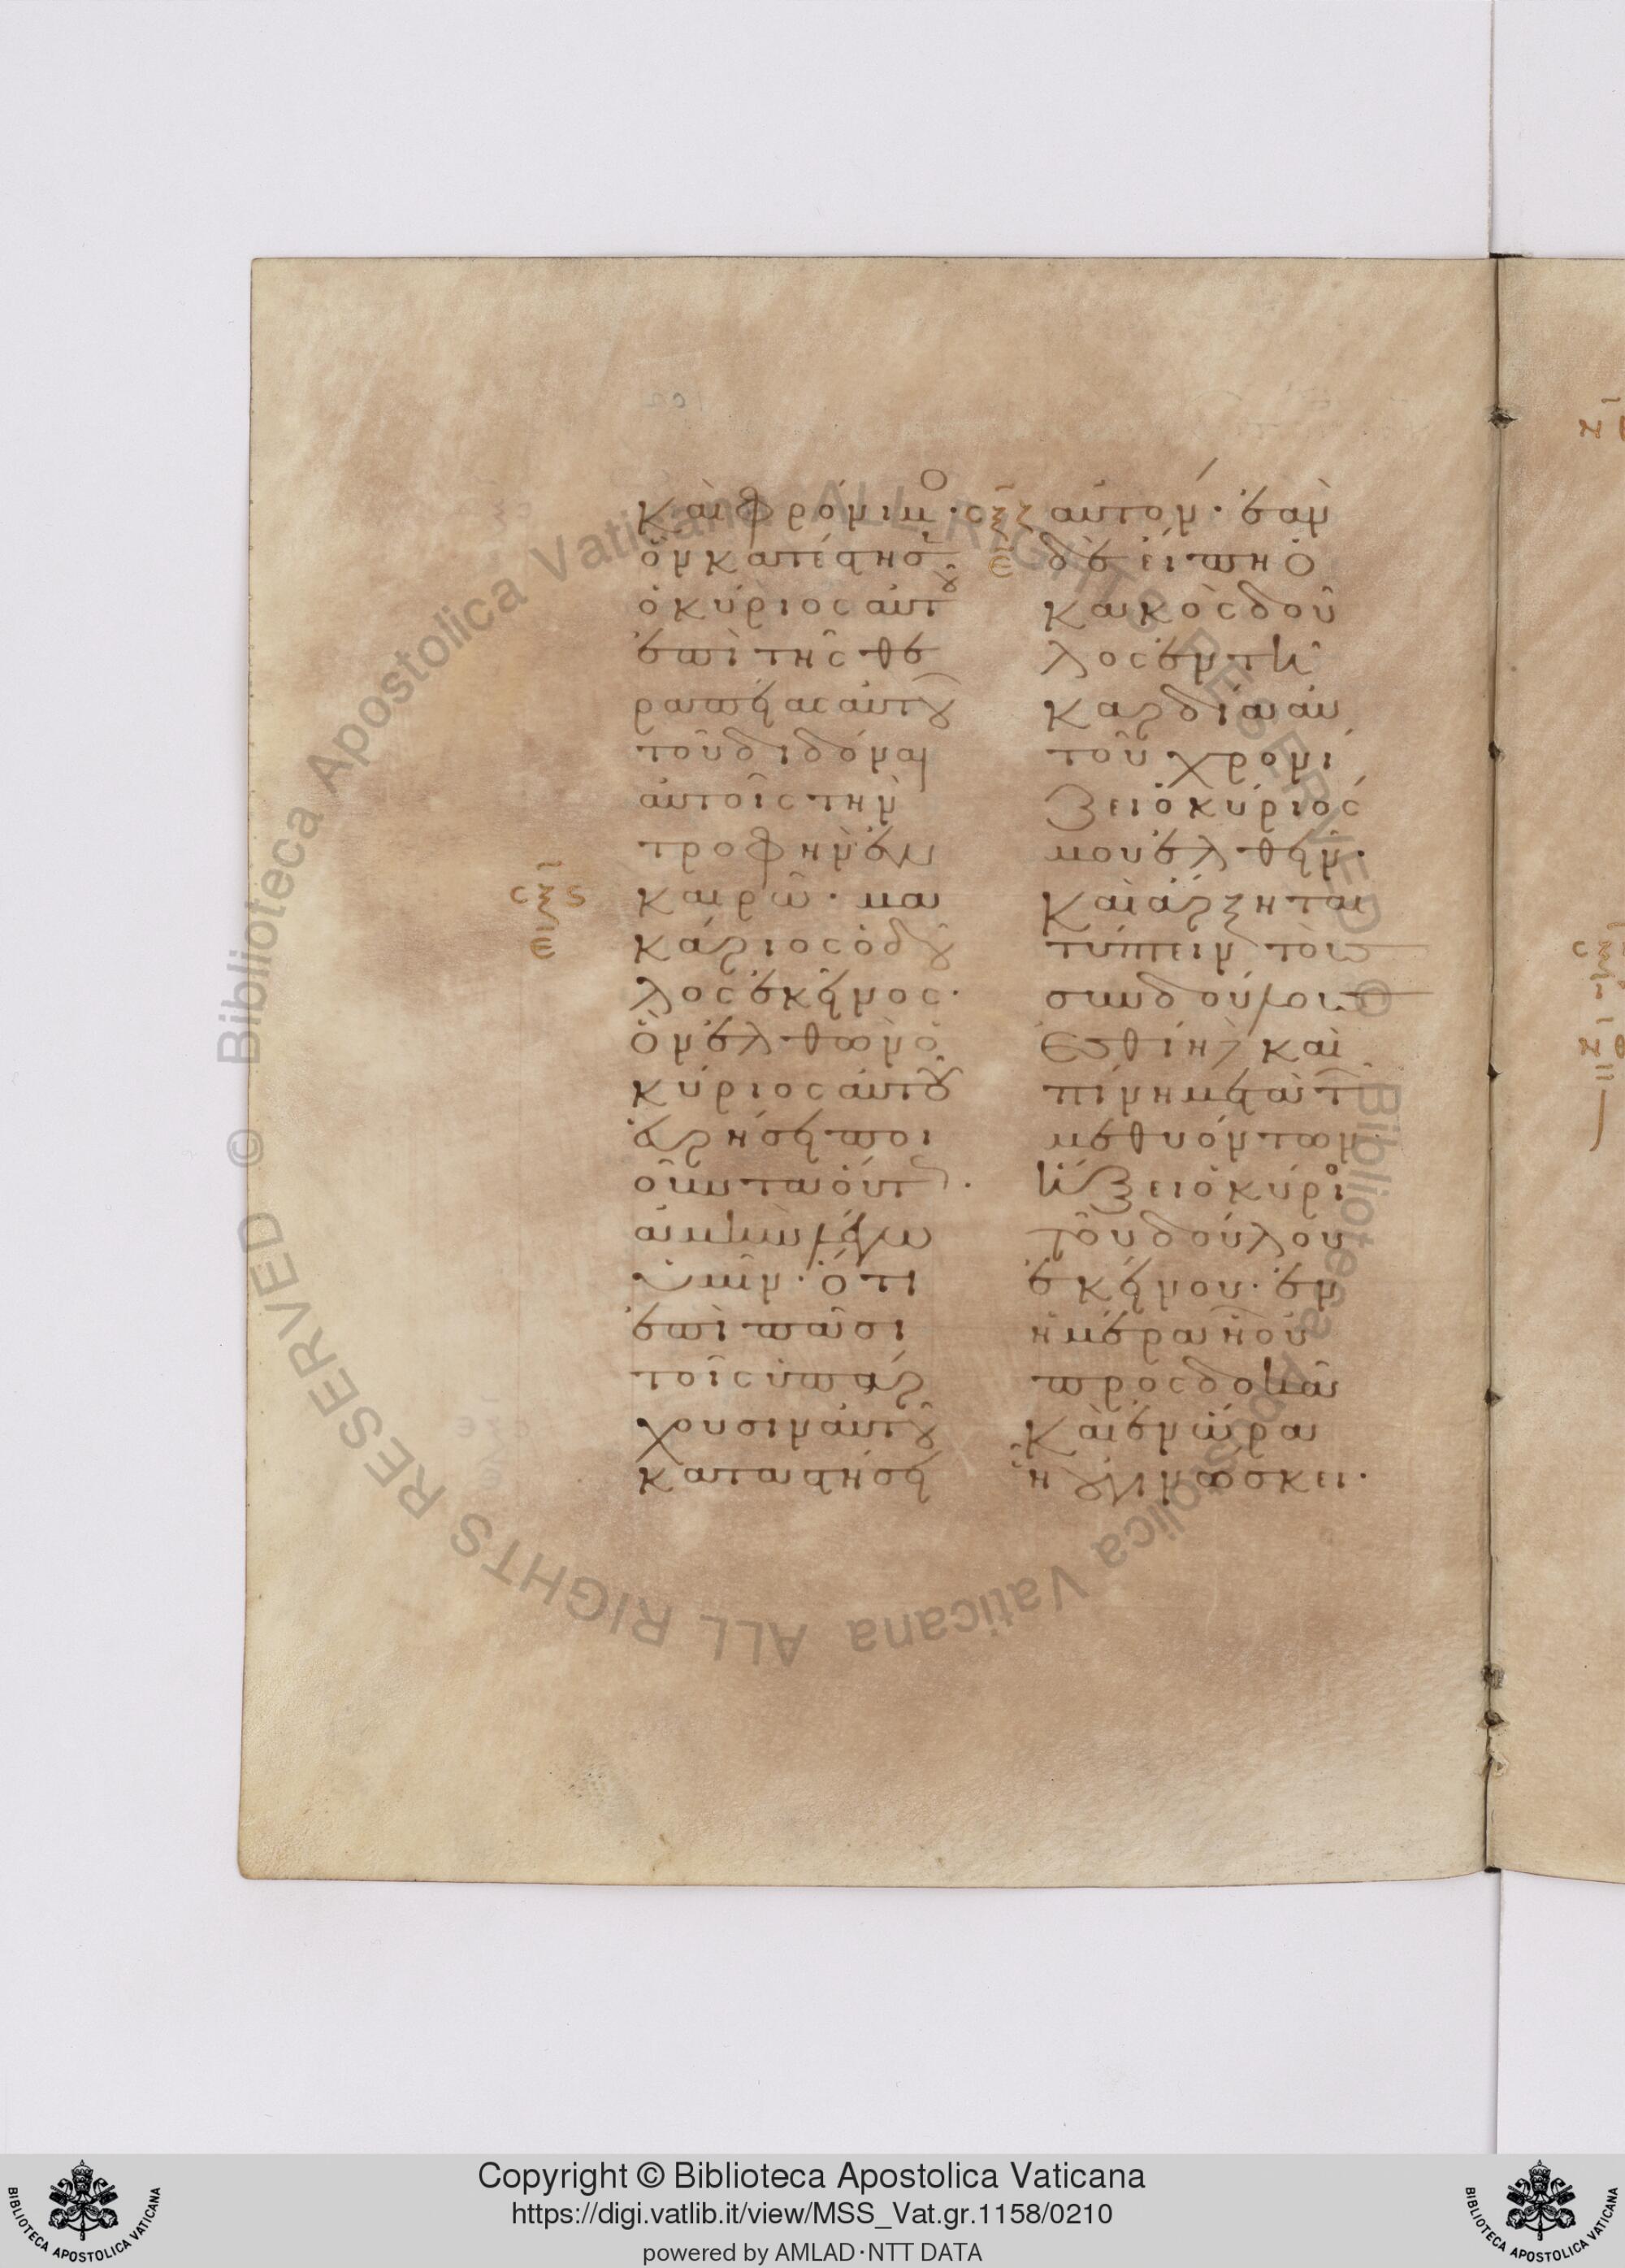 καὶ φρόνιμο·
ὃν κατέστησ
ὁ κύριος αὐτοῦ
ἐπὶ τῆς θε
ραπείας αὐτοῦ
τοῦ διδόναι
αὐτοῖς τὴν
τροφὴν ἐν
σξς
ει
καιρῶ· μα
κάριος ὁ δοῦ
λος ἐκεῖνος·
ὃν ἐλθὼν ὁ
κύριος αὐτοῦ
εὑρήσει ποι
οῦντα οὕτ·
ἀμὴν λέγω
ὑμῖν· ὅτι
ἐπὶ πᾶσι
τοῖς ὑπάρ
χουσιν αὐτοῦ
καταστήσει
σξζ
ε
αὐτόν· ἐὰν
δὲ εἴπη ὁ
κακὸς δοῦ
λος ἐν τῆ
καρδία αὐ
τοῦ χρονί
ζει ὁ κύριός
μου ἐλθεῖν·
καὶ ἄρξηται
τύπτειν τοὺ
συνδούλους
ἐσθίη δὲ καὶ
πίνη μετὰ τ
μεθυόντων·
ἥξει ὁ κύριο
τοῦ δούλου
ἐκείνου· ἐν
ἡμέρα ἧ οὐ
προσδοκᾶ
καὶ ἐν ὥρα
ἧ οὐ γινώσκει·
Copyright © Biblioteca Apostolica Vaticana
https://digi.vatlib.it/view/MSS_Vat.gr.1158/0210
powered by AMLAD·NTT DATA
BIBLIOTECA APOSTOLICA VATICANA
BIBLIOTECA APOSTOLICA VATICANA
© Biblioteca Apostolica Vaticana ALL RIGHTS RESERVED
© Biblioteca Apostolica Vaticana ALL RIGHTS RESERVED